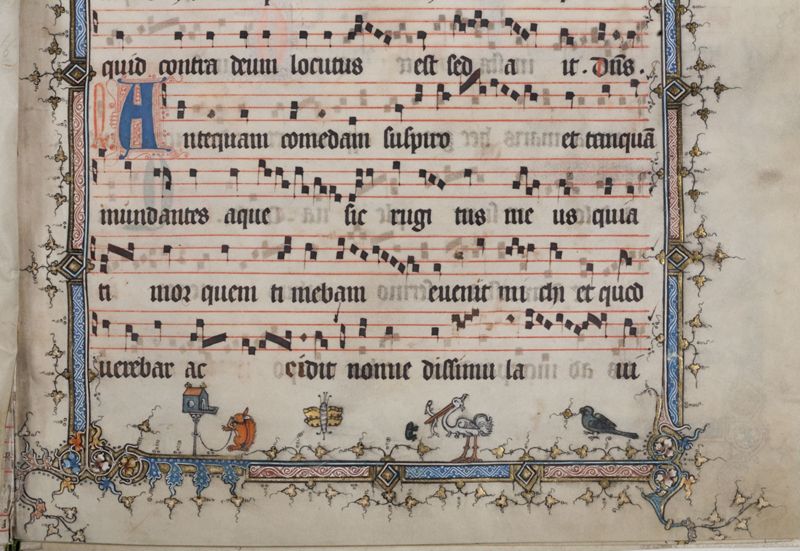 quid contra deum locutus est sed a it. Dn̄s.
Antequam comedam suspiro et tanquā
inundantes aque sic rugi tus me us quia
ti mor quem ti mebam euenit mi chi et quod
uerebar ac cidit nonne dissimu la ui